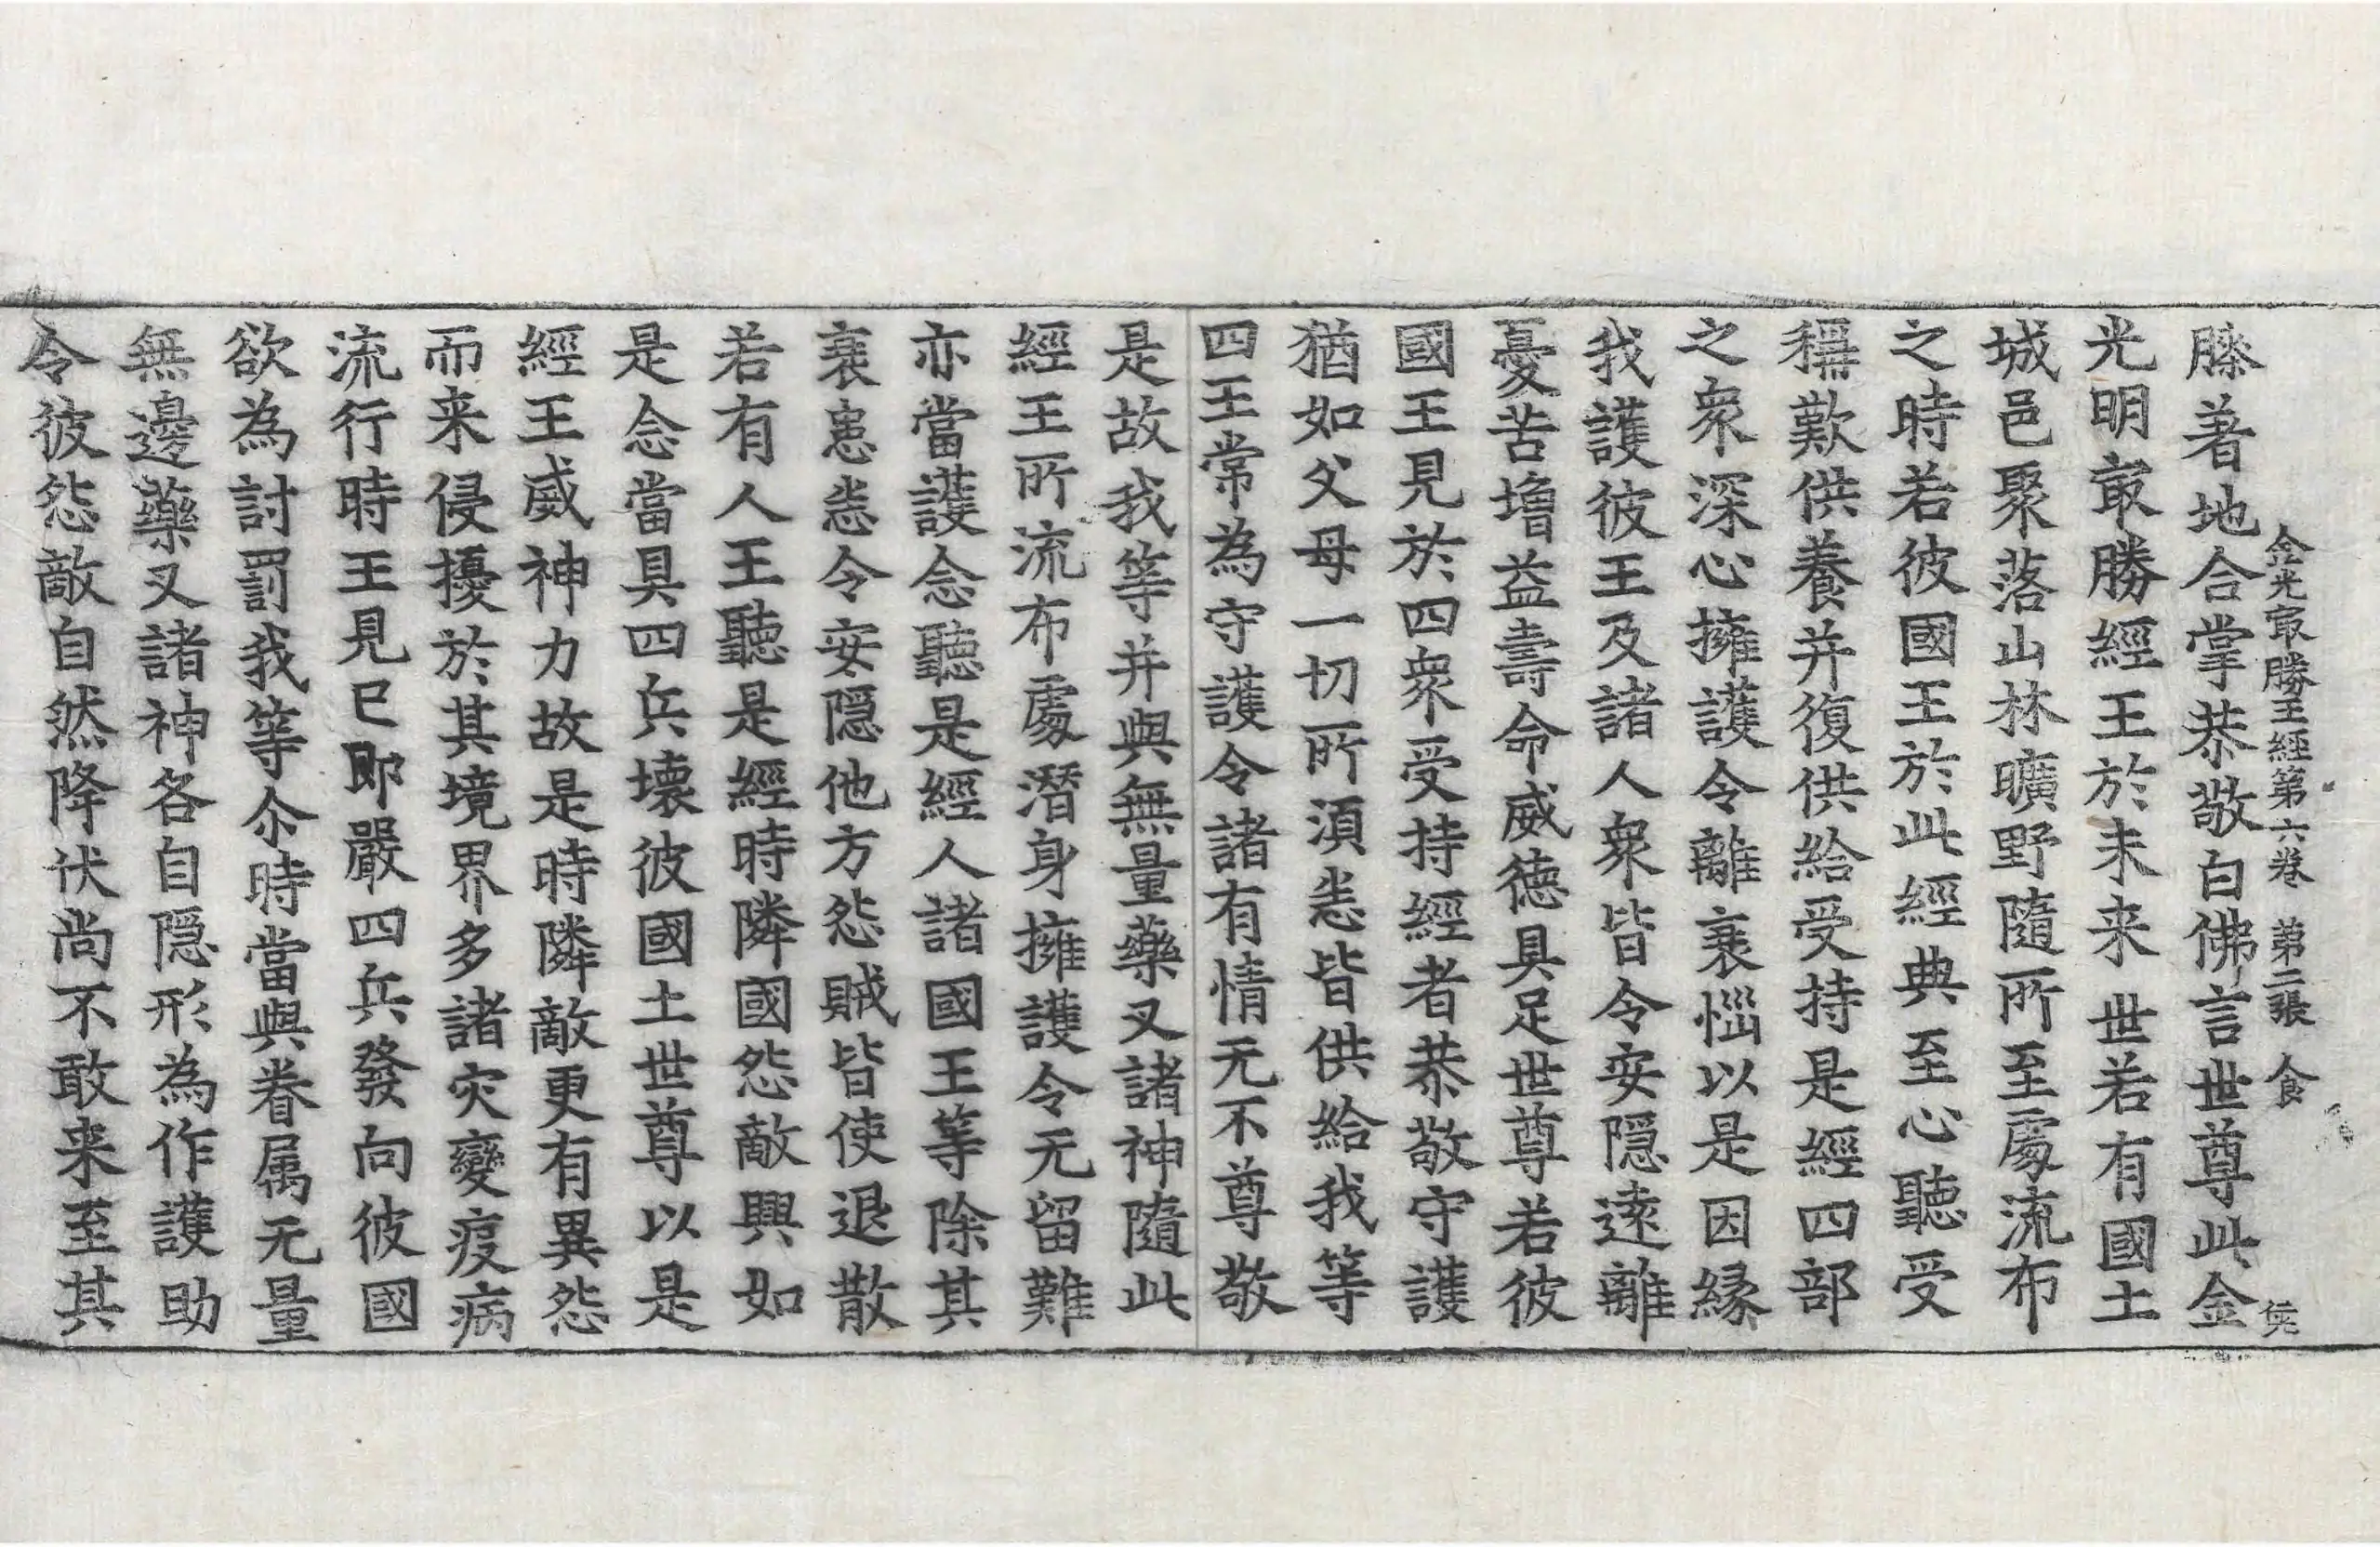 金光㝡勝王經第六卷　第二張　食
膝著地合掌恭敬白佛言世尊此金
光明㝡勝經王於未来世若有國土
城邑聚落山林曠野隨所至處流布
之時若彼國王於此經典至心聽受
稱歎供養并復供給受持是經四部
之衆深心擁護令離衰惱以是因縁
我護彼王及諸人衆皆令安隱逺離
憂苦增益壽命威德具足世尊若彼
國王見於四衆受持經者恭敬守護
猶如父母一切所湏悉皆供給我等
四王常為守護令諸有情无不尊敬
是故我等并與無量藥叉諸神隨此
經王所流布處潛身擁護令无留難
亦當護念聽是經人諸國王等除其
衰患悉令安隱他方怨賊皆使退散
若有人王聽是經時隣國怨敵興如
是念當具四兵壞彼國土世尊以是
經王威神力故是時隣敵更有異怨
而来侵擾於其境界多諸灾變疫病
流行時王見已即嚴四兵發向彼國
欲為討罰我等尒時當與眷属无量
無邊藥叉諸神各自隱形為作護助
令彼怨敵自然降伏尚不敢来至其